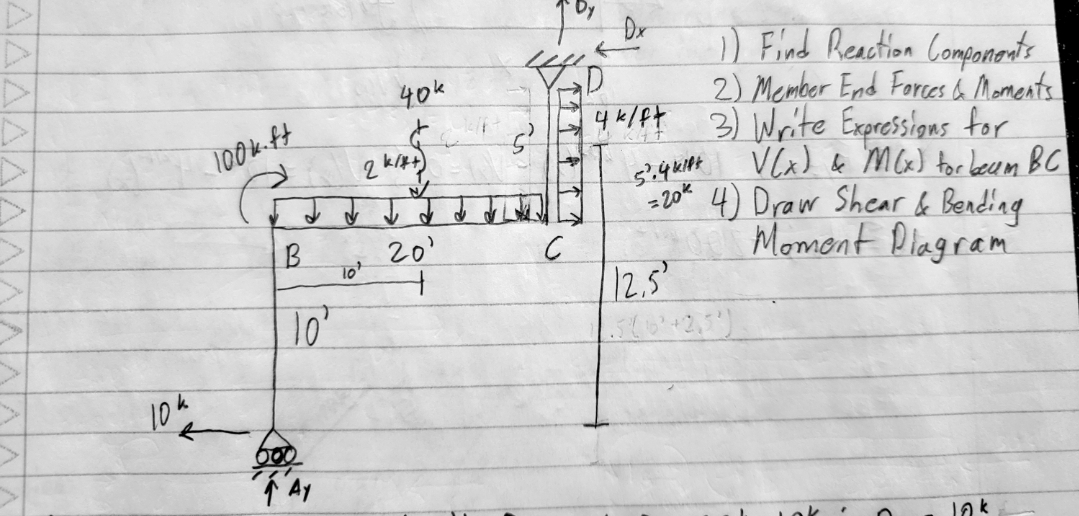 Dy
Dx
1) Find Reaction Components
D
40k
2) Member End Forces & Moments
4 k/ft
5'
3) Write Expressions for
100k.ft
2 k/ft
V(x) & M(x) for beam BC
5'.4k/ft
=20k
4) Draw Shear & Bending
Moment Diagram
B
20'
C
10'
12.5'
10'
10k
Ay